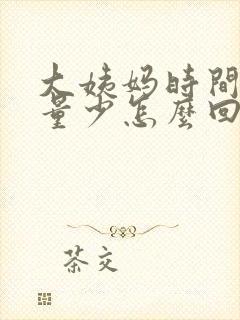 大姨妈時間
量少怎麼回
茶交